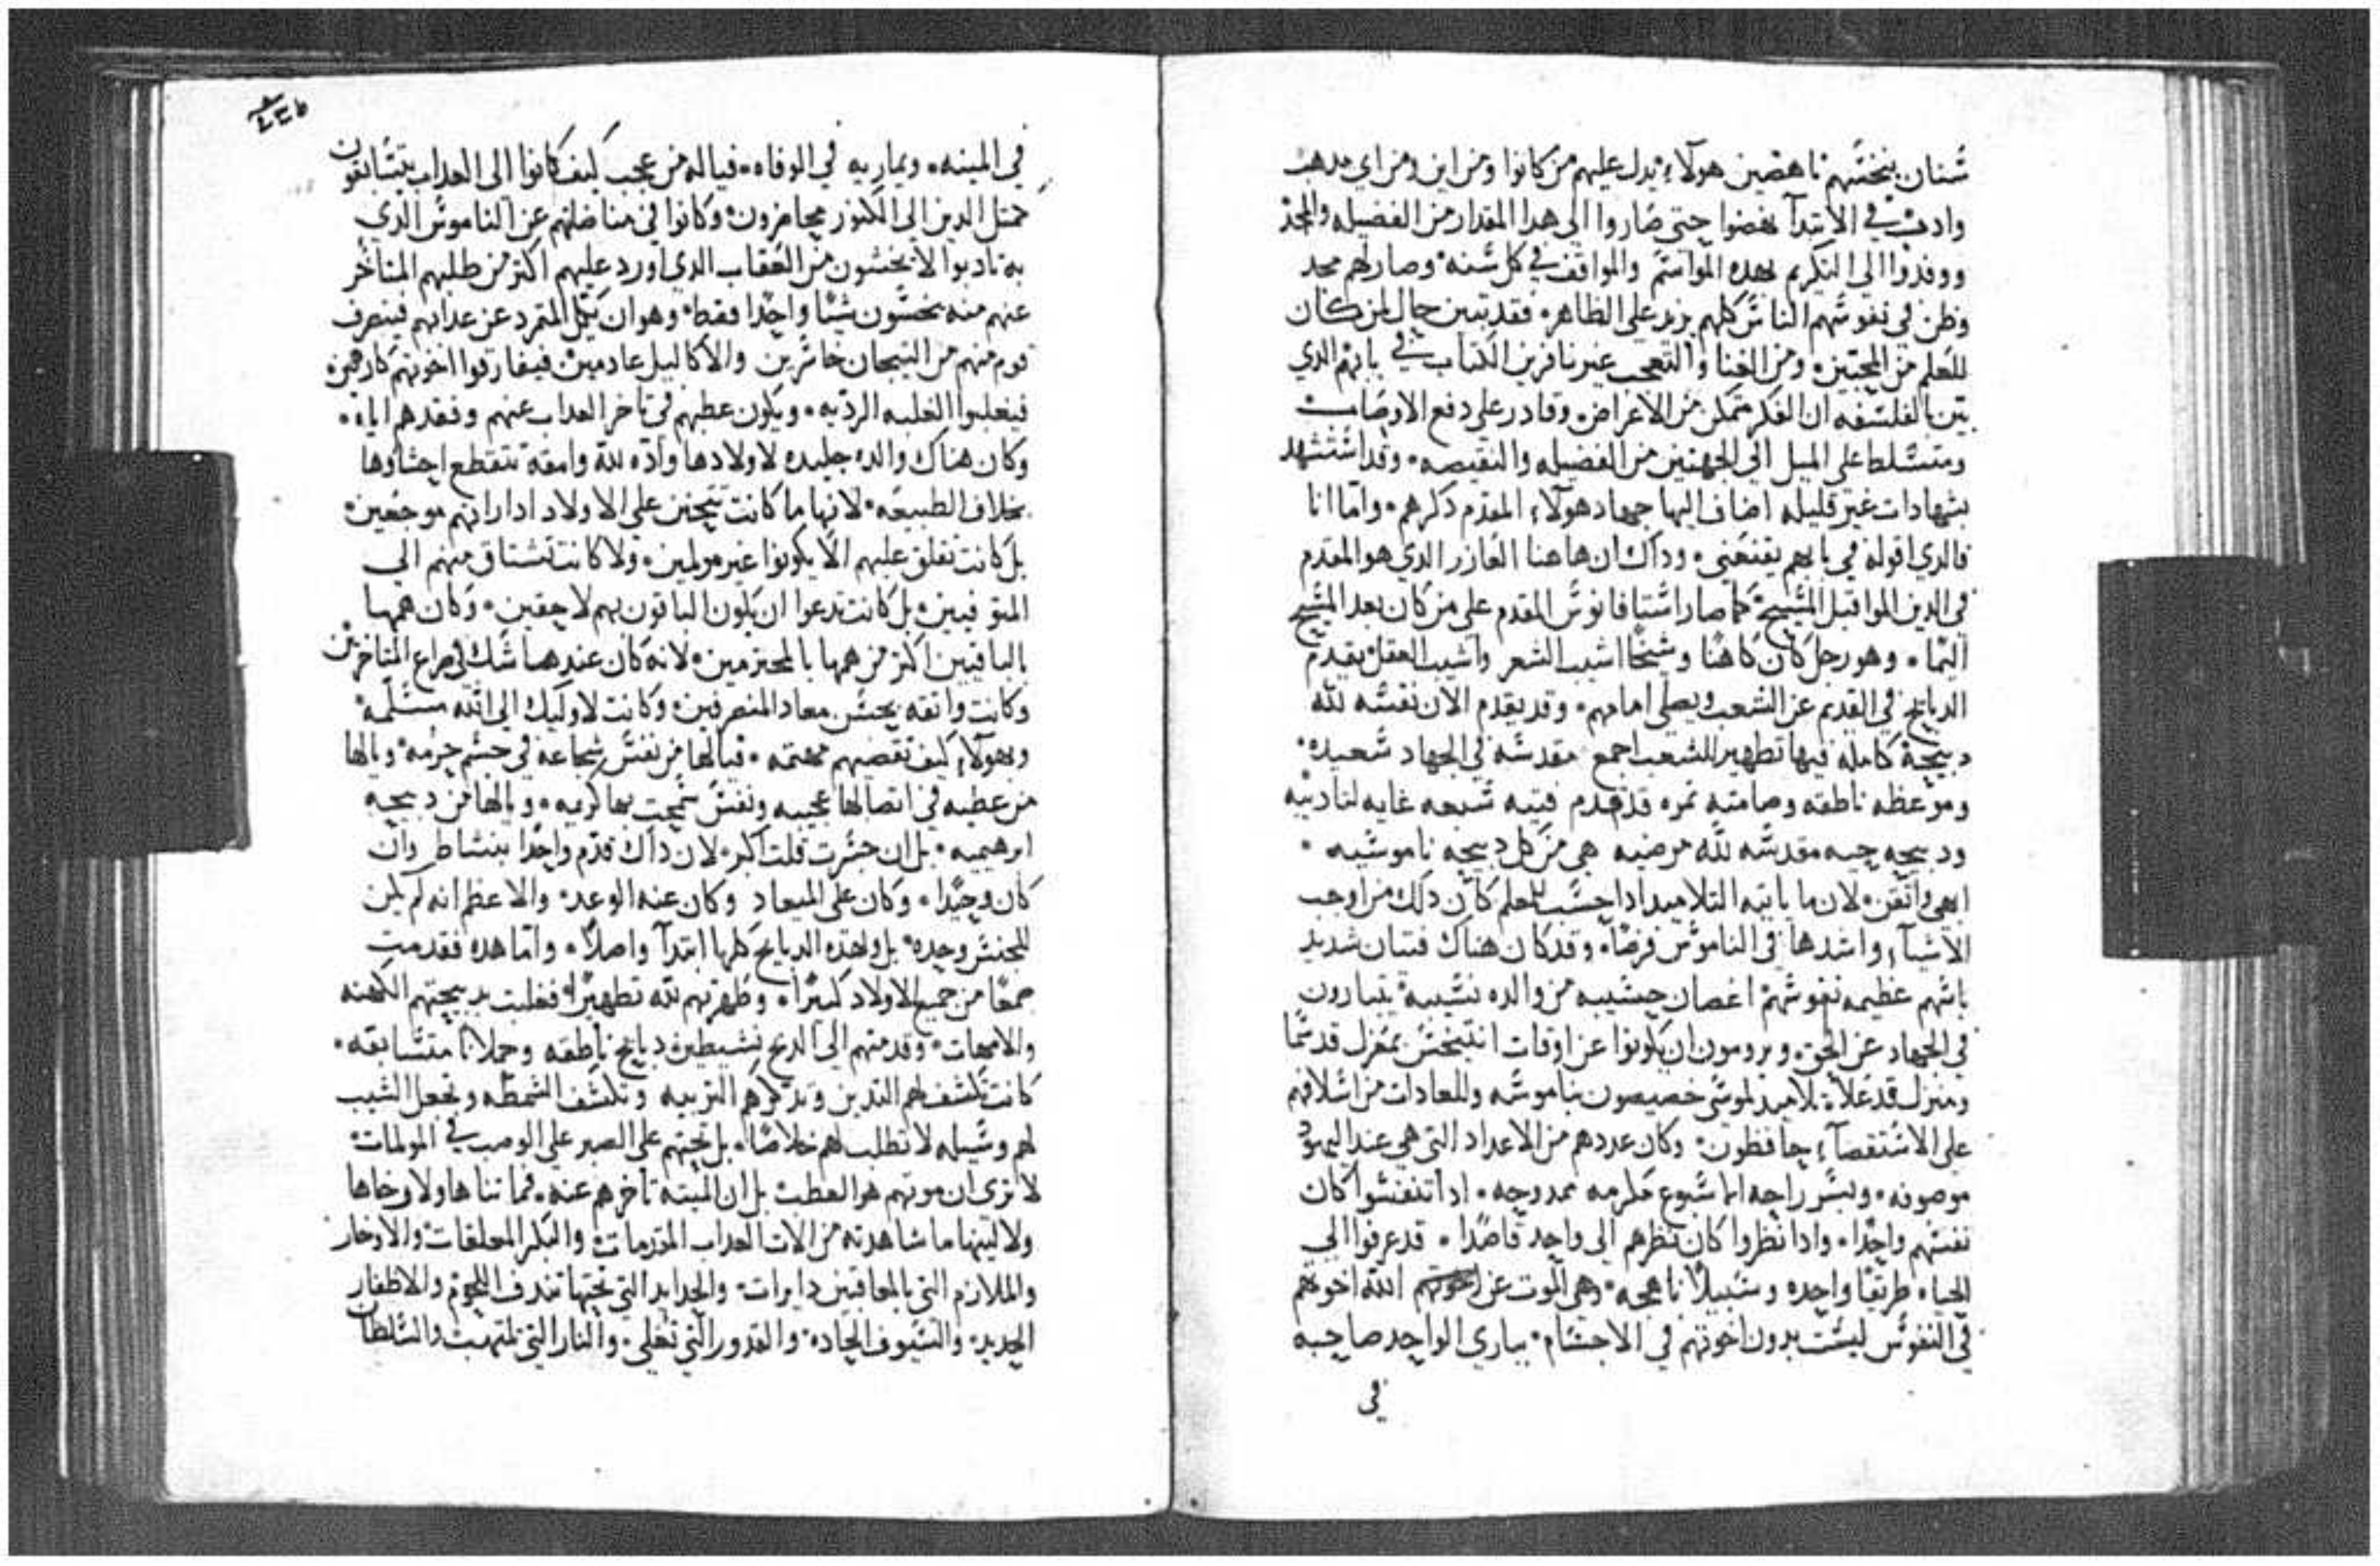 شنان بنختهم ناهضين هولاء يدل عليهم من كانوا ومن اين ومن اي مدهب
وادب في الابتدآ نهضوا حتى صاروا الى هدا المقدار من الفضيله والمجد
ووفدوا الى التكريم بهده المواسم والمواقف في كل سنه وصار لهم مجد
وظن في نفوسهم الناس كلهم يزيد على الظاهر فقد تبين حال لمن كان
للعلم من المحبين ومن الغنا والتعجب عير نافرين الكتاب في بابهم الدي
بين بالفلسفه ان الفكر متمكن من الاعراض وقادر على دفع الاوصاب
ومتسلط على الميل الى الجهتين من الفضيله والنقيصه وقد استشهد
بشهادات غير قليله اضاف اليها جهاد هولاء المقدم دكرهم واما انا
فالدي اقوله في بابهم يقنعني وداك ان هاهنا العازر الدي هو المقدم
في الدين الموا قبل المسيح كما صار استافانوس المقدم على من كان بعد المسيح
الما وهو رجل كان كاهنا وشيخا اشيب الشعر واشيب العقل يقدم
الدبايح في القديم عن الشعب ويصلي امامهم وقد يقدم الان نفسه لله
دبيحة كامله فيها تطهير للشعب اجمع مقدسه في الجهاد سعيده
وموعظه ناطقه وصامته نمره قد قدم فتيه سبعه غايه لتاديبه
ودبيحه حيه مقدسه لله مرضيه هي من كل دبيحه ناموسيه
ابهى واتقن لان ما ياتيه التلاميد ادا حسب للمعلم كان دلك من اوجب
الاشيآ واشدها في الناموس فرضا وقد كان هناك فتيان شديد
باسهم عظيمه نفوسهم اغصان حسيبه من والده نسيبه يتبارون
في الجهاد عن الحق ويرومون ان يكونوا عن اوقات انتيخس بمعزل قد سما
ومنزل قد علا تلاميد لموسى خصيصون بناموسه وللعادات من اسلافهم
على الاستقصآ حافظون وكان عددهم من الاعداد التي هي عند اليهود
موصوفه وبسر راحه ايا سبوع مكرمه ممدوحه ادا تنفسوا كان
نفسهم واحدا وادا نظروا كان نظرهم الى واحد قاصدا قد عرفوا الى
الحياه طريقا واحده وسبيلا ناهجه وهي الموت عن الله اخوهم
في النفوس ليست بدون اخوتهم في الاجسام يباري الواحد صاحبه
في
في الميته ويماريه في الوفاه فيا له من عجب كيف كانوا الى العداب يتسابقون
كمثل الدين الى الكنوز يحاضرون وكانوا في مناضلتهم عن الناموس الدي
به تادبوا لا يخشون من العقاب الدي اورد عليهم اكثر من طلبهم المتاخر
عنهم منه يخشون شيا واحدا فقط وهو ان يكل المتمرد عن عدابهم فينصرف
قوم منهم من التيجان خاسرين والاكاليل عادمين فيفارقوا اخوتهم كارهين
فيغلبوا الغلبه الرديه ويكون عطبهم في تاخر العداب عنهم وفقدهم اياه
وكان هناك والده جليده لاولادها واده لله وامقه تتقطع احشاوها
بخلاف الطبيعه لانها ما كانت تتحنن على الاولاد ادا راتهم موجعين
بل كانت تقلق عليهم الا يكونوا غير مولمين ولا كانت تشتاق منهم الى
المتوفيين بل كانت تدعوا ان يكون الباقون بهم لاحقين وكان همها
بالباقيين اكثر من همها بالمحترمين لانه كان عندها شك في صراع المتاخرين
وكانت واثقه بحسن معاد المنصرفين وكانت لاوليك الى الله مسلمه
وبهولاء كيف تقضيهم مهتمه فيا لها من نفس شجاعه في جسم حرمه ويا لها
من عطيه في اتصالها عجيبه ونفس سمحت بها كريمه ويا لها من دبيحه
ابرهيميه بل ان جسرت قلت اكبر لان داك قدم واحدا بنشاط وان
كان وحيدا وكان على الميعاد وكان عنه الوعد والاعظم انه لم يكن
للجنس وحده بل ولهده الدبايح كلها ابتدآ واصلا واما هده فقدمت
جمعا من جميع الاولاد كبيرا وطهرتهم لله تطهيرا فغلبت بدبيحتهم الكهنه
والامهات وقدمتهم الى الدبح نشيطين دبايح ناطقه وحملانا متسابقه
كانت تكشف لهم الثديين وتدكرهم التربيه وتكشف الشمطه وتجعل الشيب
لهم وسيله لا تطلب لهم خلاصا بل تحثهم على الصبر على الوصب في المولمات
لا ترى ان موتهم هو العطب بل ان الميته تاخرهم عنه فما ثناها ولا رخاها
ولا لينها ما شاهدته من الات العداب المقدمات والبكر المعلقات والاوخار
والملازم التي بالمعاقبين دايرات والحدايد التي تحتها تندف اللحوم والاظفار
الحديد والسيوف الحاده والقدور التي تغلي والنار التي تلتهب والسلطان